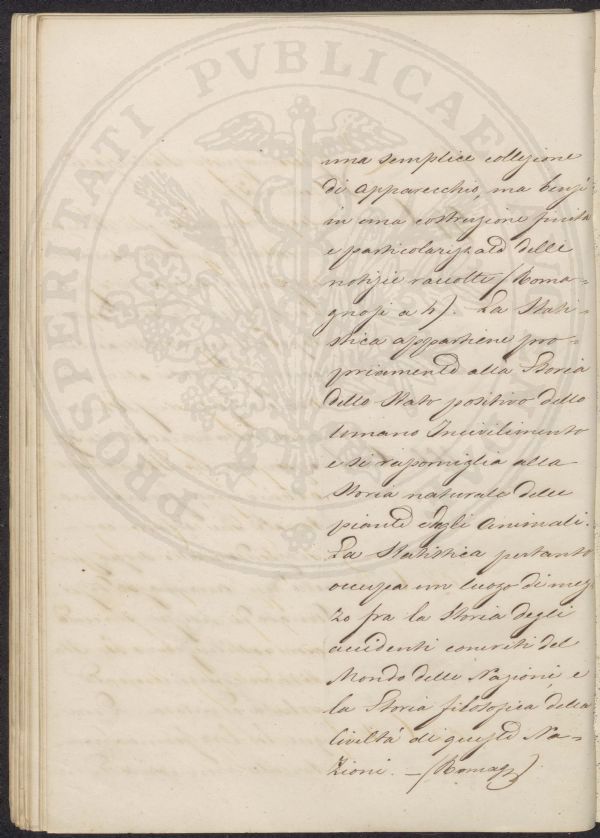 PROSPERITATI PVBLICAE
una semplice collezione
di apparecchio, ma bensì
in una costruzione finita
e particolarizzata delle
notizie raccolte (Roma-
gnosi a 4). La Stati-
stica appartiene pro-
priamente alla Storia
dello Stato positivo dello
umano Incivilimento
e si rapomiglia alla
Storia naturale delle
piante e degli animali.
La Statistica pertanto
occupa un luogo di mez
zo fra la Storia degli
accidenti concreti del
Mondo delle Nazioni, e
la Storia filosofica della
Civiltà di queste Na-
zioni. — (Romag)